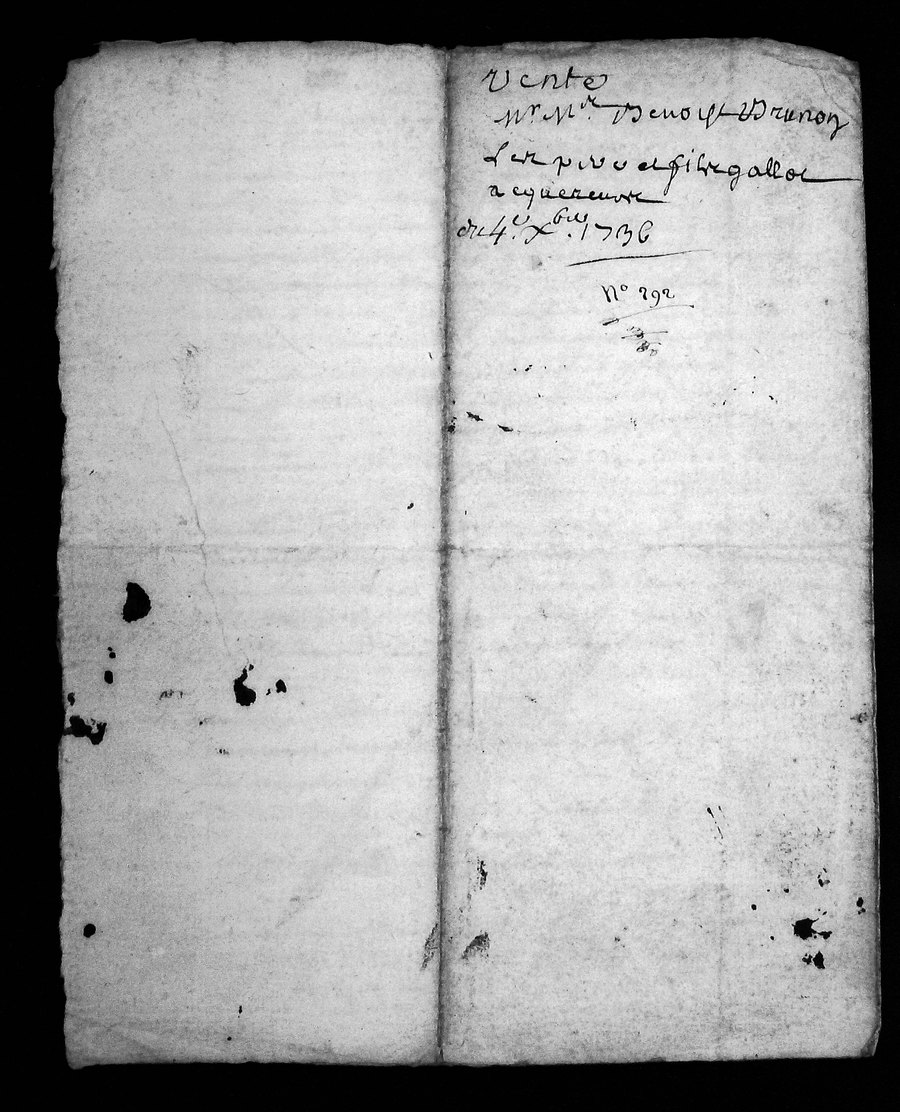 Vente
Mr Me Benoist Brunon
Les pere et fils gallot
acquereurs
du 4e Xbre 1736
No 292